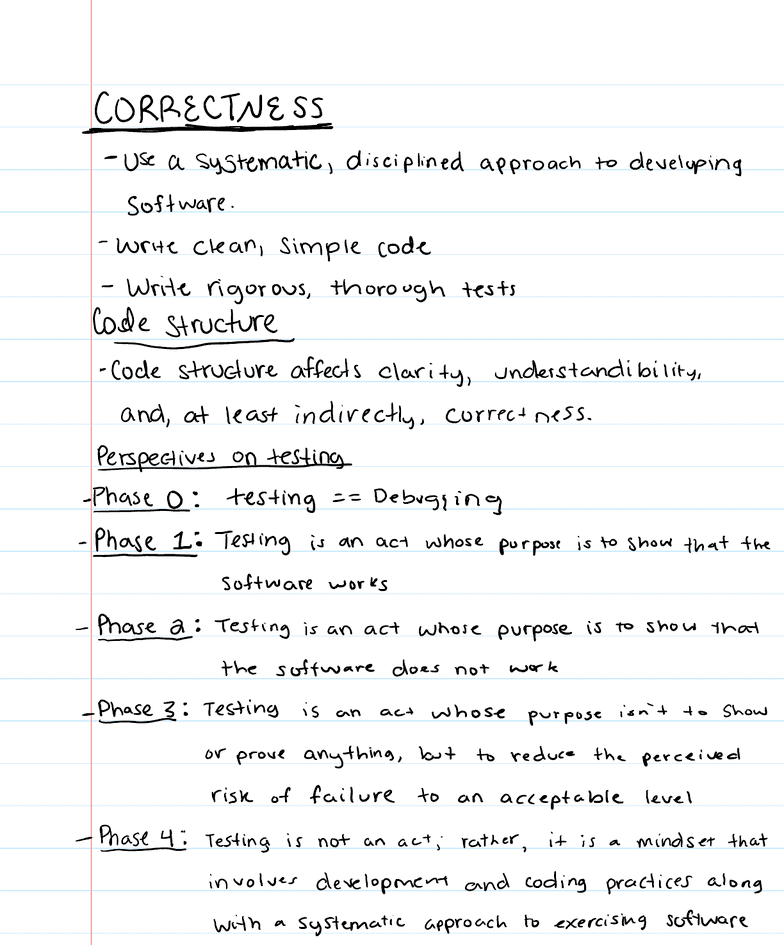 CORRECTNESS
- Use a systematic, disciplined approach to developing
software.
- Write clean, simple code
- Write rigorous, thorough tests
Code Structure
- Code structure affects clarity, understandibility,
and, at least indirectly, correctness.
Perspectives on testing
- Phase 0: testing == Debugging
- Phase 1: Testing is an act whose purpose is to show that the
software works
- Phase 2: Testing is an act whose purpose is to show that
the software does not work
- Phase 3: Testing is an act whose purpose isn't to show
or prove anything, but to reduce the perceived
risk of failure to an acceptable level
- Phase 4: Testing is not an act; rather, it is a mindset that
involves development and coding practices along
with a systematic approach to exercising software